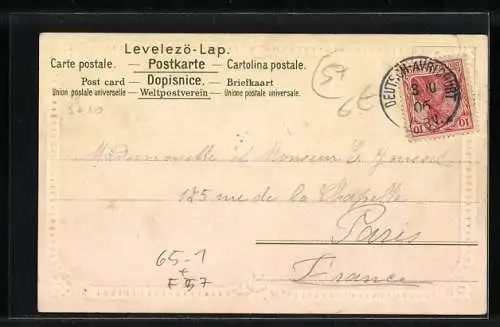 Levelezö-Lap.
Carte postale. Postkarte Cartolina postale.
Post card Dopisnice. Briefkaart
Union postale universelle Weltpostverein Unione postale universale.
57
6E
DEUTSCH-AVRICOURT
05
10 10
Mademoiselle et Monsieur
125 rue de la Chapelle
Paris
France
65-1
+